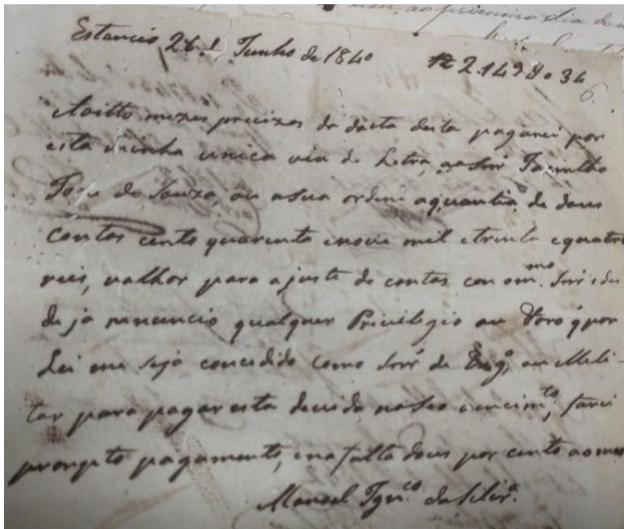 Estancia 28 de Junho de 1840 Rs 2.149$034
Aoitto mezes precizos da dacta desta pagarei por
esta minha unica via de Letra, ao Snr Jacintho
Joze de Souza, ou a sua ordem a quantia de dous
contos cento quarenta inove mil etrinta equatro
reis, valhor para ajuste de contas com o mmo Snr edes
de ja renuncio qualquer Privilegio ou Foro q por
Lei me seja concedido como Snr de Engo, ou Meli-
tar para pagar esta devida no seo vencimto, farei
prompto pagamento, e na falta dous por cento ao mes
Manoel Ignco da Silvra